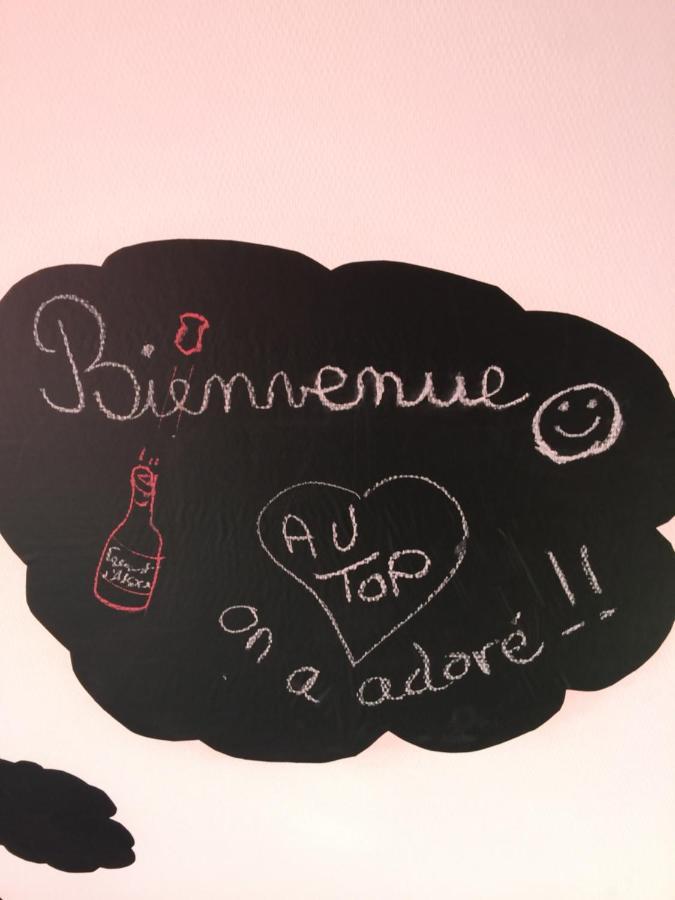 Bienvenue
AU
TOP
on a adoré !!